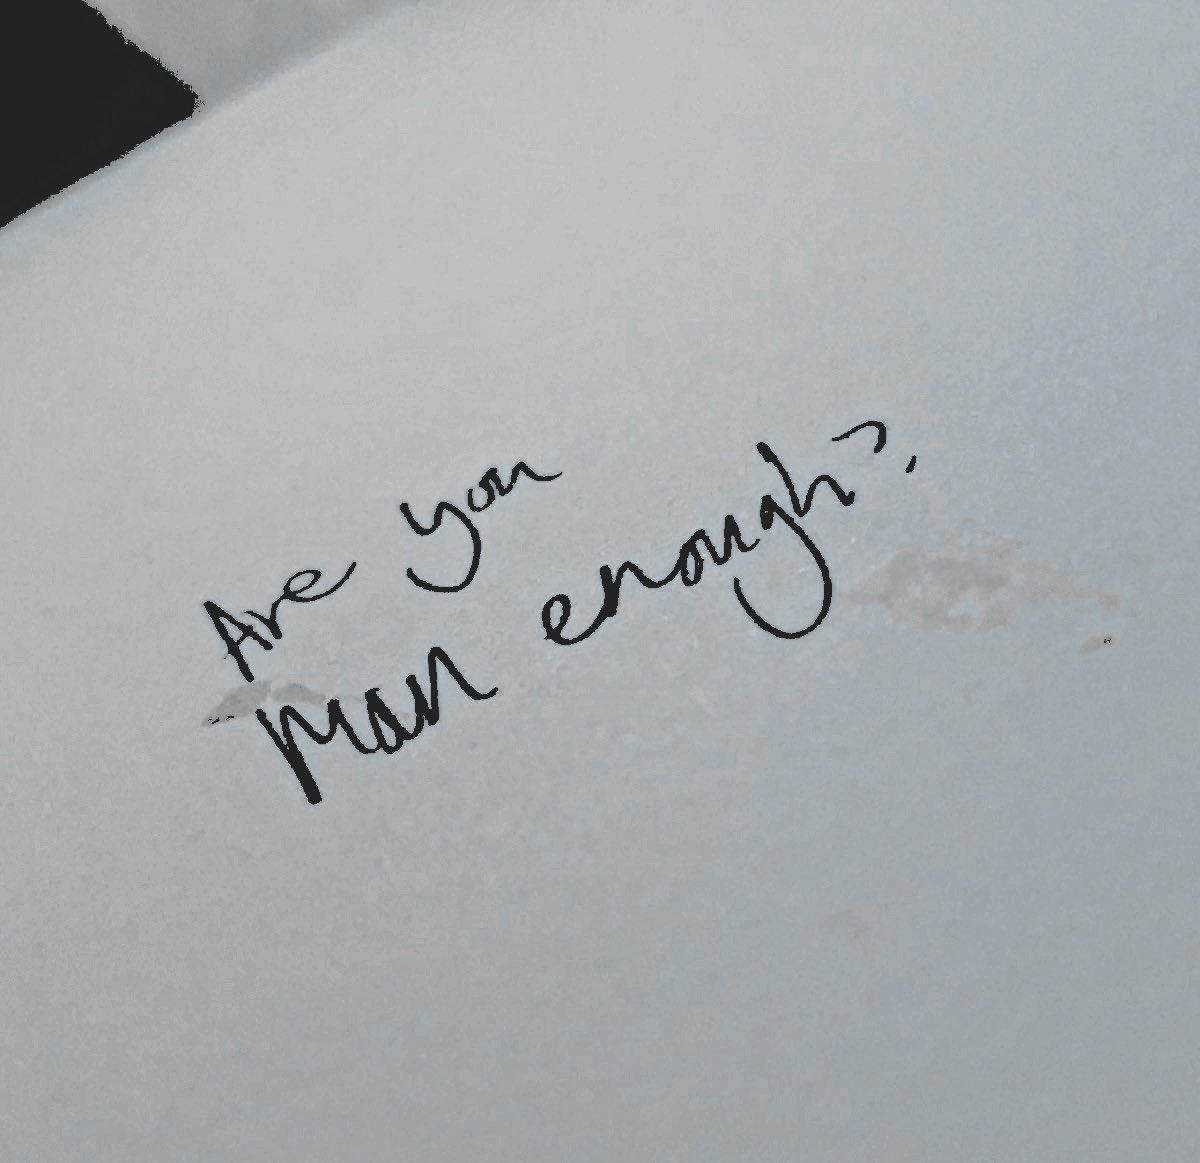 Are you
man enough?